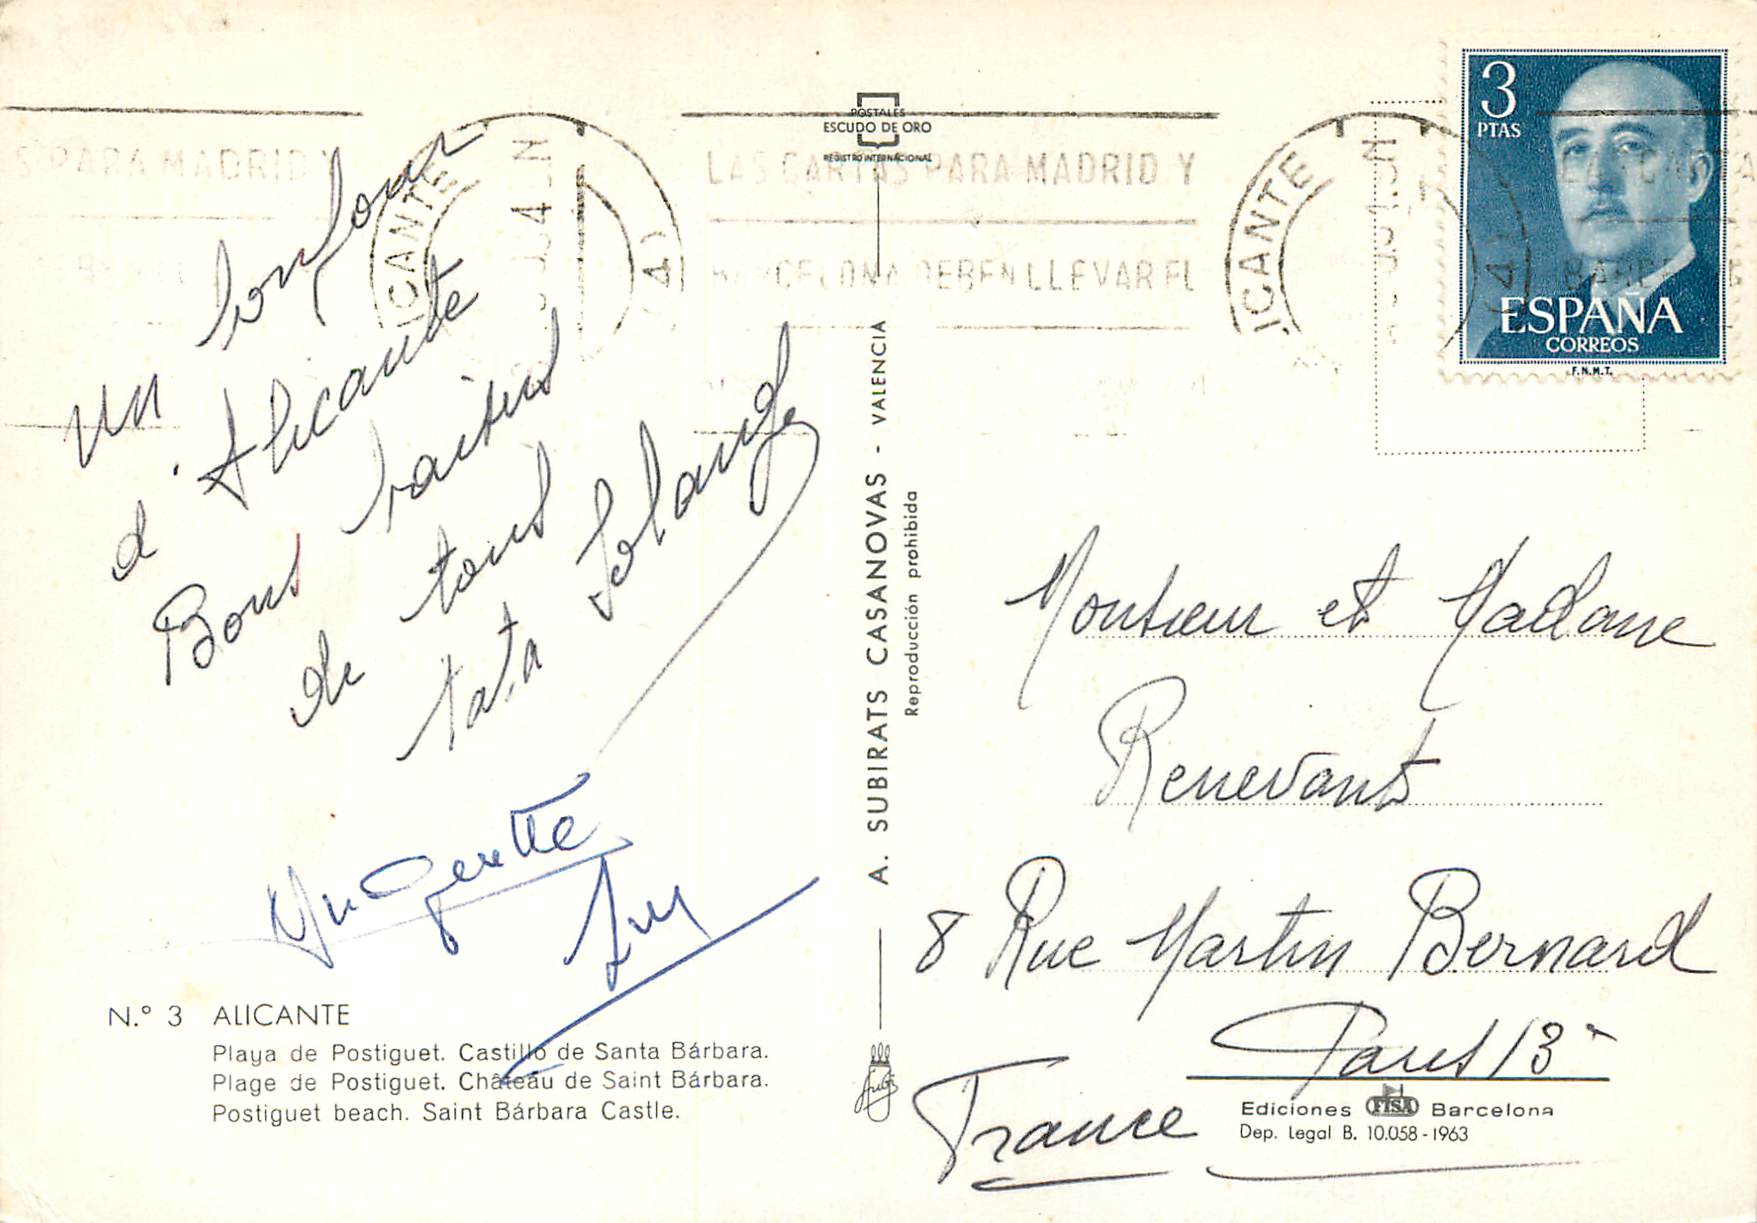 POSTALES
ESCUDO DE ORO
REGISTRO INTERNACIONAL
3
PTAS
ESPAÑA
CORREOS
F.N.M.T.
S PARA MADRID Y
ALICANTE
LAS CARTAS PARA MADRID Y
BARCELONA DEBEN LLEVAR EL
ICANTE
LAS CARTA
un bonjour
d'Alicante
Bons baisers
de tous
tata Solange
Huguette
Guy
A. SUBIRATS CASANOVAS - VALENCIA
Reproducción prohibida
Monsieur et Madame
Renevants
8 Rue Martin Bernard
Paris 13e
France
N.º 3 ALICANTE
Playa de Postiguet. Castillo de Santa Bárbara.
Plage de Postiguet. Château de Saint Bárbara.
Postiguet beach. Saint Bárbara Castle.
Ediciones FISA Barcelona
Dep. Legal B. 10.058-1963